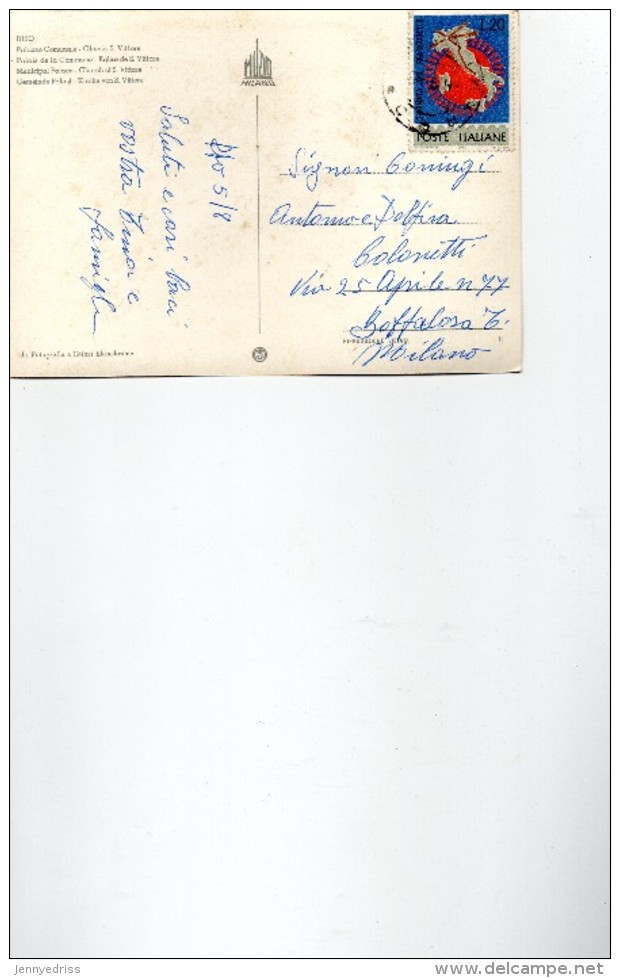 RHO
Palazzo Comunale - Chiesa S. Vittore
Palais de la Commune - Eglise de S. Vittore
Municipal Palace - Church of S. Vittore
Gemeinde Palast - Kirche von S. Vittore
MILANO
L.20
POSTE ITALIANE
Rho 5/8
Saluti e cari baci
vostra
e
famiglia
Signori Coniugi
Antonio e Delfina
Colonetti
Via 25 Aprile n 77
Boffalora T.
Milano
jennyedriss
http://www.delcampe.net